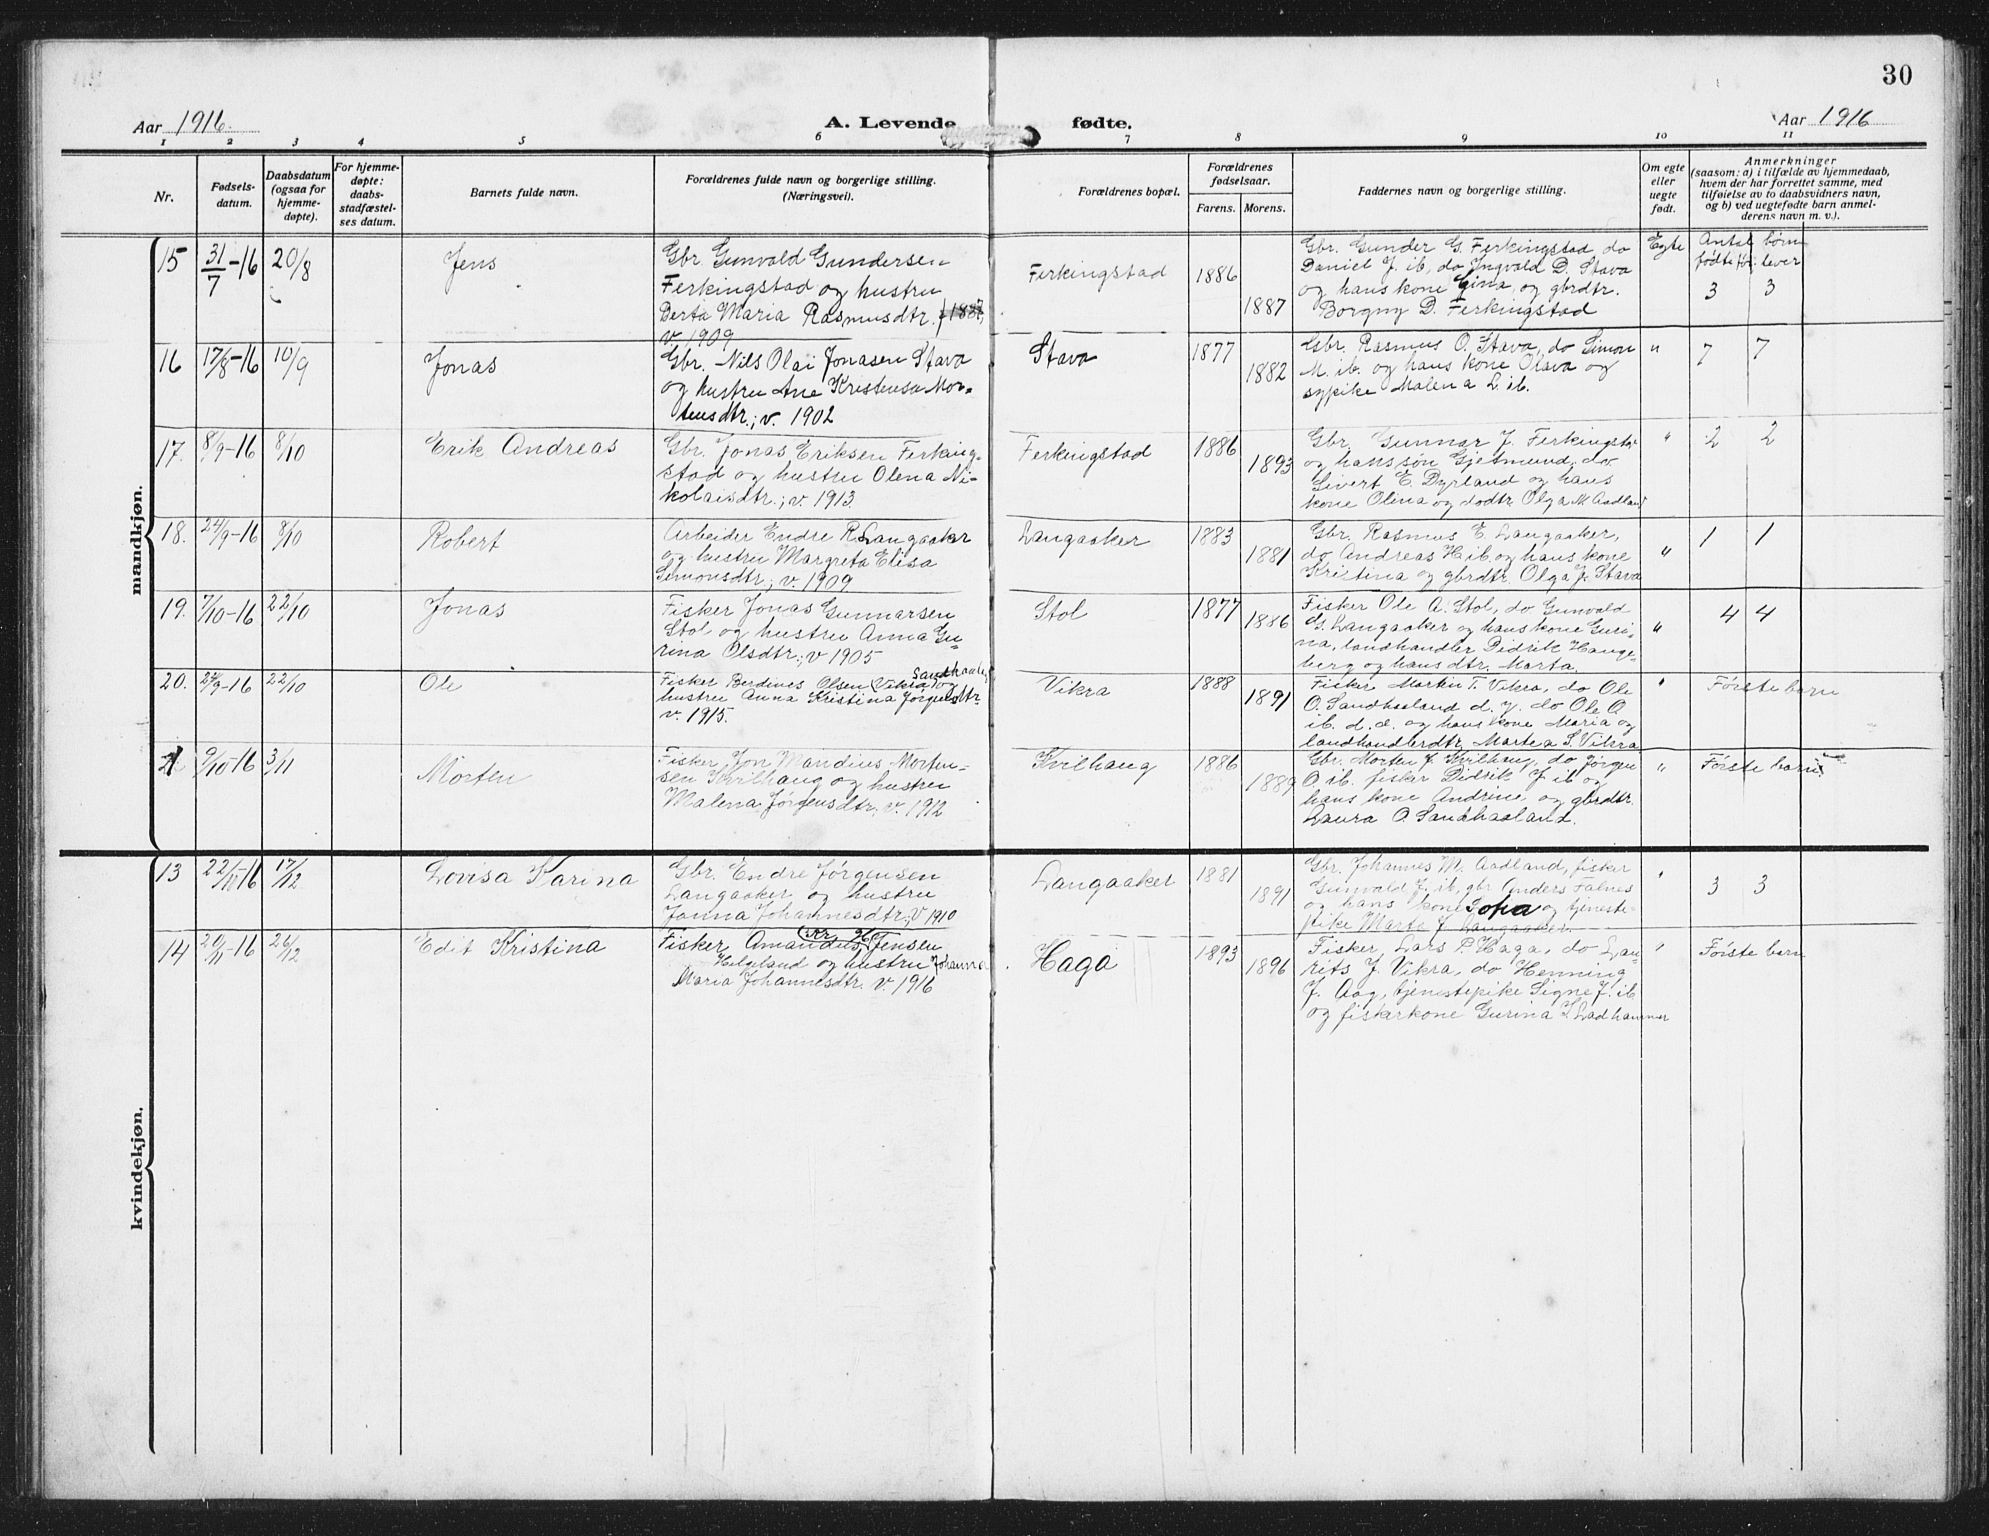 30
Aar 1916
A. Levende fødte.
Aar 1916
1 2 3 4 5 6 7 8 9 10 11
Nr.
Fødsels-
datum.
Daabsdatum
(ogsaa for
hjemme-
døpte).
For hjemme-
døpte:
daabs-
stadfæstel-
ses datum.
Barnets fulde navn.
Forældrenes fulde navn og borgerlige stilling.
(Næringsvei).
Forældrenes bopæl.
Forældrenes
fødselsaar.
Farens. Morens.
Faddernes navn og borgerlige stilling.
Om egte
eller
uegte
født.
Anmerkninger
(saasom: a) i tilfælde av hjemmedaab,
hvem der har forrettet samme, med
tilføielse av to daabsvidners navn,
og b) ved uegtefødte barn anmel-
derens navn m. v.).
mandkjøn.
15 31/7-16 20/8 Jens
Gbr. Gunvald Gundersen
Ferkingstad og hustru
Berta Maria Rasmusdtr. f 1887,
v. 1909
Ferkingstad 1886 1887
Gbr. Gunder G. Ferkingstad do
Daniel J. ib, do Ingvald D. Stava
og hans kone Gina, og gbrdtr.
Borgny D. Ferkingstad
Egte
Antal børn
fødte før. lever
3 3
16 17/8-16 10/9 Jonas
Gbr. Nils Olai Jonasen Stava
og hustru Ane Kristensa Mor-
tensdtr.; v. 1902
Stava 1877 1882
Gbr. Rasmus O. Stava, do Simon
M. ib. og hans kone Olava og
sypike Malena L. ib.
" 7 7
17. 8/9-16 8/10 Erik Andreas
Gbr. Jonas Eriksen Ferking-
stad og hustru Olena Ni-
kolaisdtr.; v. 1913
Ferkingstad 1886 1893
Gbr. Gunnar J. Ferkingstd
og hans søn Gjetmund, do
Sivert E. Dyrland og hans
kone Olina og dodtr Olga M. Aadland
" 2 2
18. 24/9-16 8/10 Robert
Arbeider Endre R. Langaaker
og hustru Margreta Elisa
Simonsdtr; v. 1909
Langaaker 1883 1881
Gbr. Rasmus E. Langaaker,
do Andreas H. ib. og hans kone
Kristina og gbrdtr. Olga J. Stava
" 1 1
19. 7/10-16 22/10 Jonas
Fisker Jonas Gunnarsen
Stol og hustru Anna Gu-
rina Olsdtr.; v 1905
Stol 1877 1886
Fisker Ole A. Stol, do Gunvald
G. Langaaker og hans kone Guri-
na, landhandler Didrik Hauge-
berg og hans dtr. Marta
" 4 4
20. 24/9-16 22/10 Ole
Sandhaalnd
Fisker Berdines Olsen (Vikra) og
hustru Anna Kristina Jørgensdtr
v. 1915.
Vikra 1888 1891
Fisker Martin T. Vikra, do Ole
O. Sandhaaland d. y. do Ole O.
ib. d. e. og hans kone Maria og
landhandlerdtr. Martea S. Vikra
" Første barn
21 9/10-16 3/11 Morten
Fisker Jon Mandius Morten-
sen Kvilhaug og hustru
Malena Jørgensdtr. v. 1912
Kvilhaug 1886 1889
Gbr. Morten J. Kvilhaug, do Jørgen
O. ib. fisker Didrik J. ib og
hans kone Andrine og gbrdtr.
Laura O. Sandhaaland.
" Første barn
kvindekjøn.
13 22/11-16 17/12 Lovisa Karina
Gbr. Endre Jørgensen
Langaaker og hustru
Janna Johannesdtr. v 1910
Langaaker 1881 1891
Gbr. Johannes M. Aadland, fisker
Gunvald J. ib, gbr Anders Falnes
og hans kone og tjeneste-
pike Marta J. Langaaker.
" 3 3
14 20/11-16 26/12 Edit Kristina
Fisker Amandus Jensen
Helgeland og hustru Johanna
Maria Johannesdtr. v. 1916
Haga 1893 1896
Fisker Lars P. Haga, do Lau-
rits J. Vikra, do Henning
J. Aag, tjenestepike Signe J. ib
og fiskerkone Gurina L Ladhammer
" Første barn